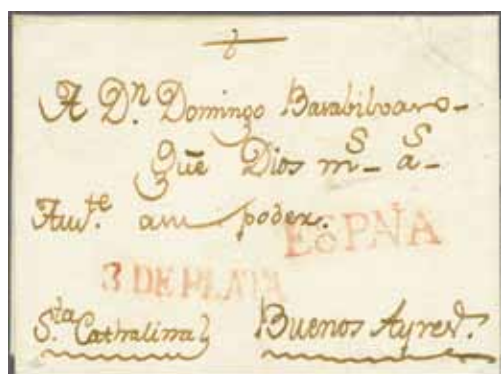 A Dn. Domingo Barabilbaro-
Que Dios ms_ as_
poder.
ESPÑA
3 DE PLATA
Sta Cathalina
Buenos Ayres.